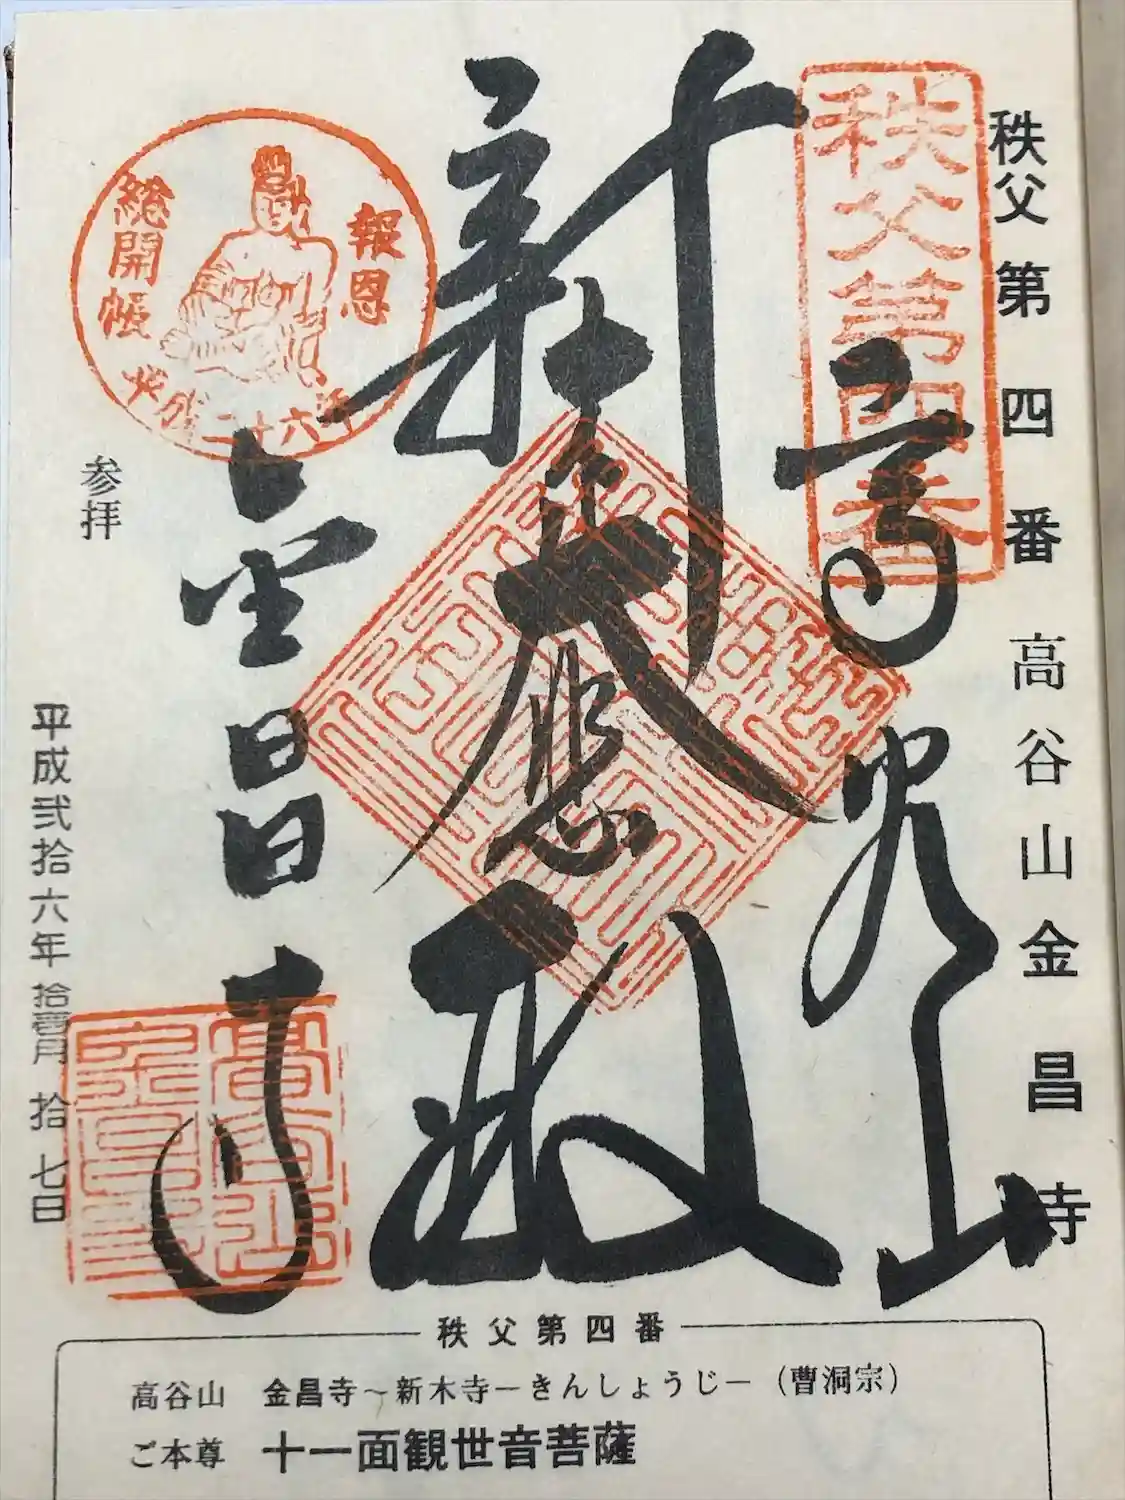 秩父第四番 高谷山金昌寺
秩父第四番
高谷山
新木大悲殿
金昌寺
報恩
総開帳
平成二十六年
参拝
平成弐拾六年 拾壹月 拾七日
秩父第四番
高谷山 金昌寺~新木寺―きんしょうじ―(曹洞宗)
ご本尊 十一面観世音菩薩